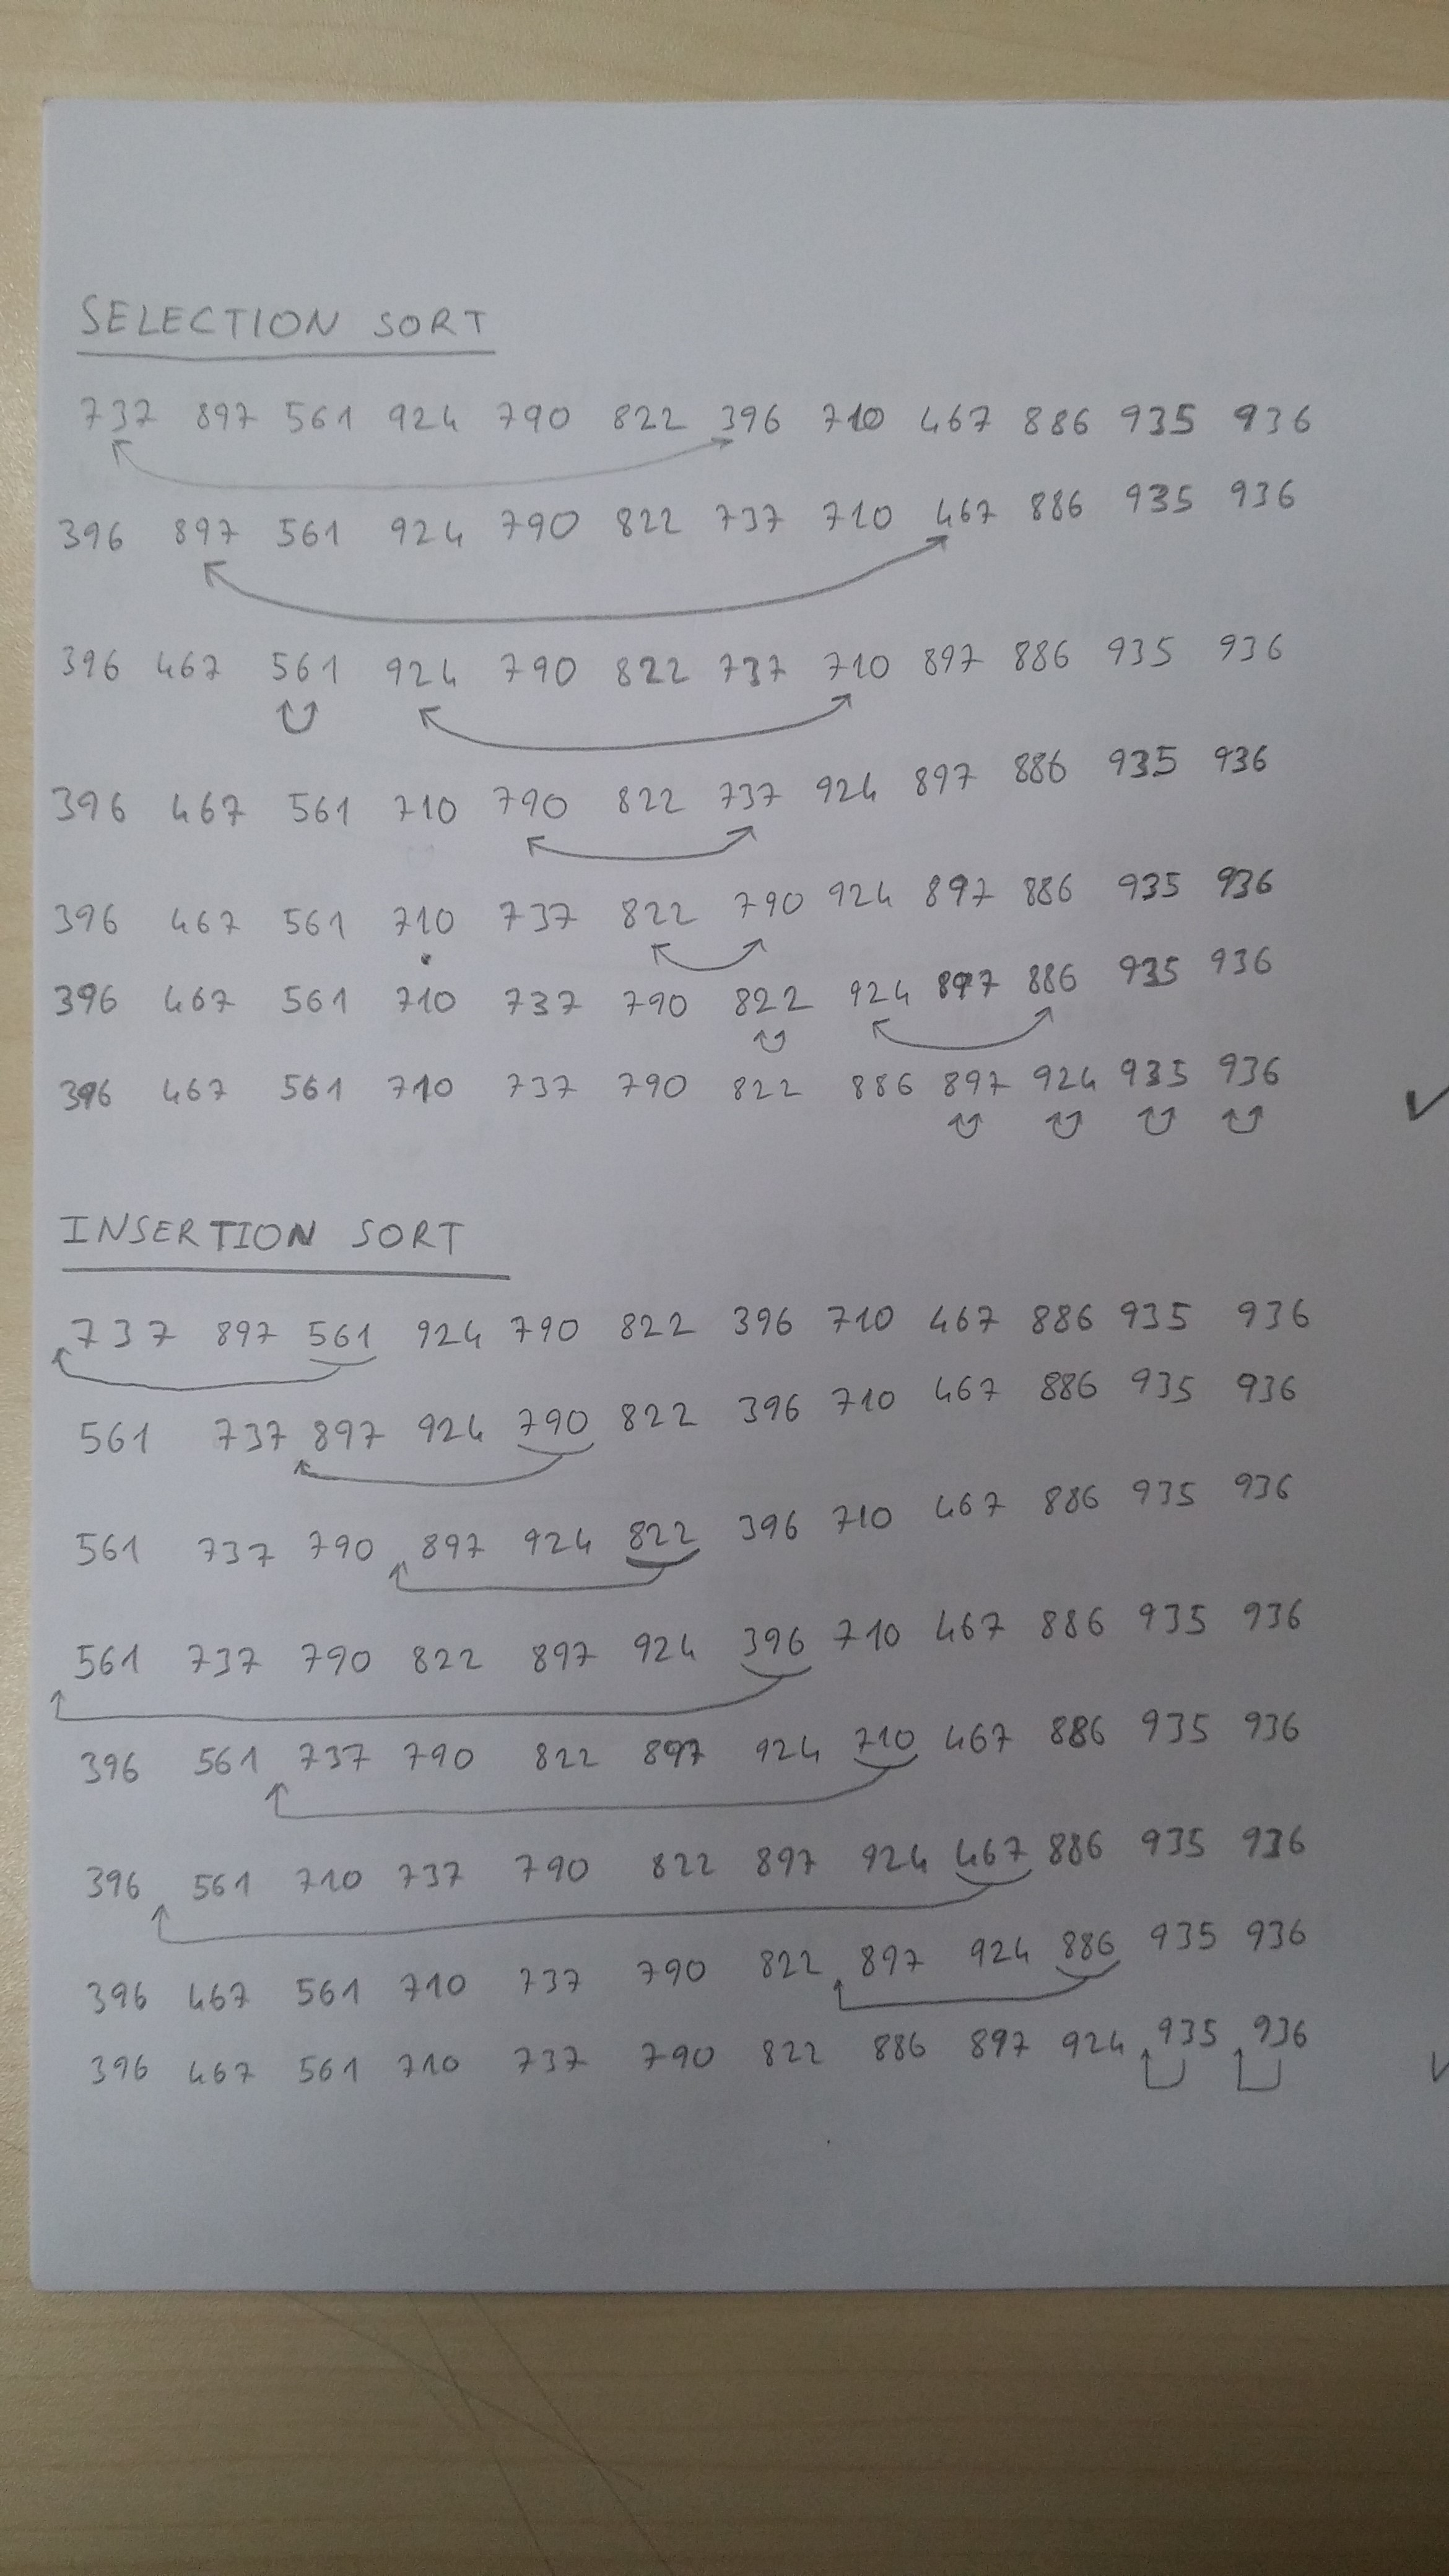 SELECTION SORT
737 897 561 924 790 822 396 710 467 886 935 936
396 897 561 924 790 822 737 710 467 886 935 936
396 467 561 924 790 822 737 710 897 886 935 936
396 467 561 710 790 822 737 924 897 886 935 936
396 467 561 710 737 822 790 924 897 886 935 936
396 467 561 710 737 790 822 924 897 886 935 936
396 467 561 710 737 790 822 886 897 924 935 936
INSERTION SORT
737 897 561 924 790 822 396 710 467 886 935 936
561 737 897 924 790 822 396 710 467 886 935 936
561 737 790 897 924 822 396 710 467 886 935 936
561 737 790 822 897 924 396 710 467 886 935 936
396 561 737 790 822 897 924 710 467 886 935 936
396 561 710 737 790 822 897 924 467 886 935 936
396 467 561 710 737 790 822 897 924 886 935 936
396 467 561 710 737 790 822 886 897 924 935 936